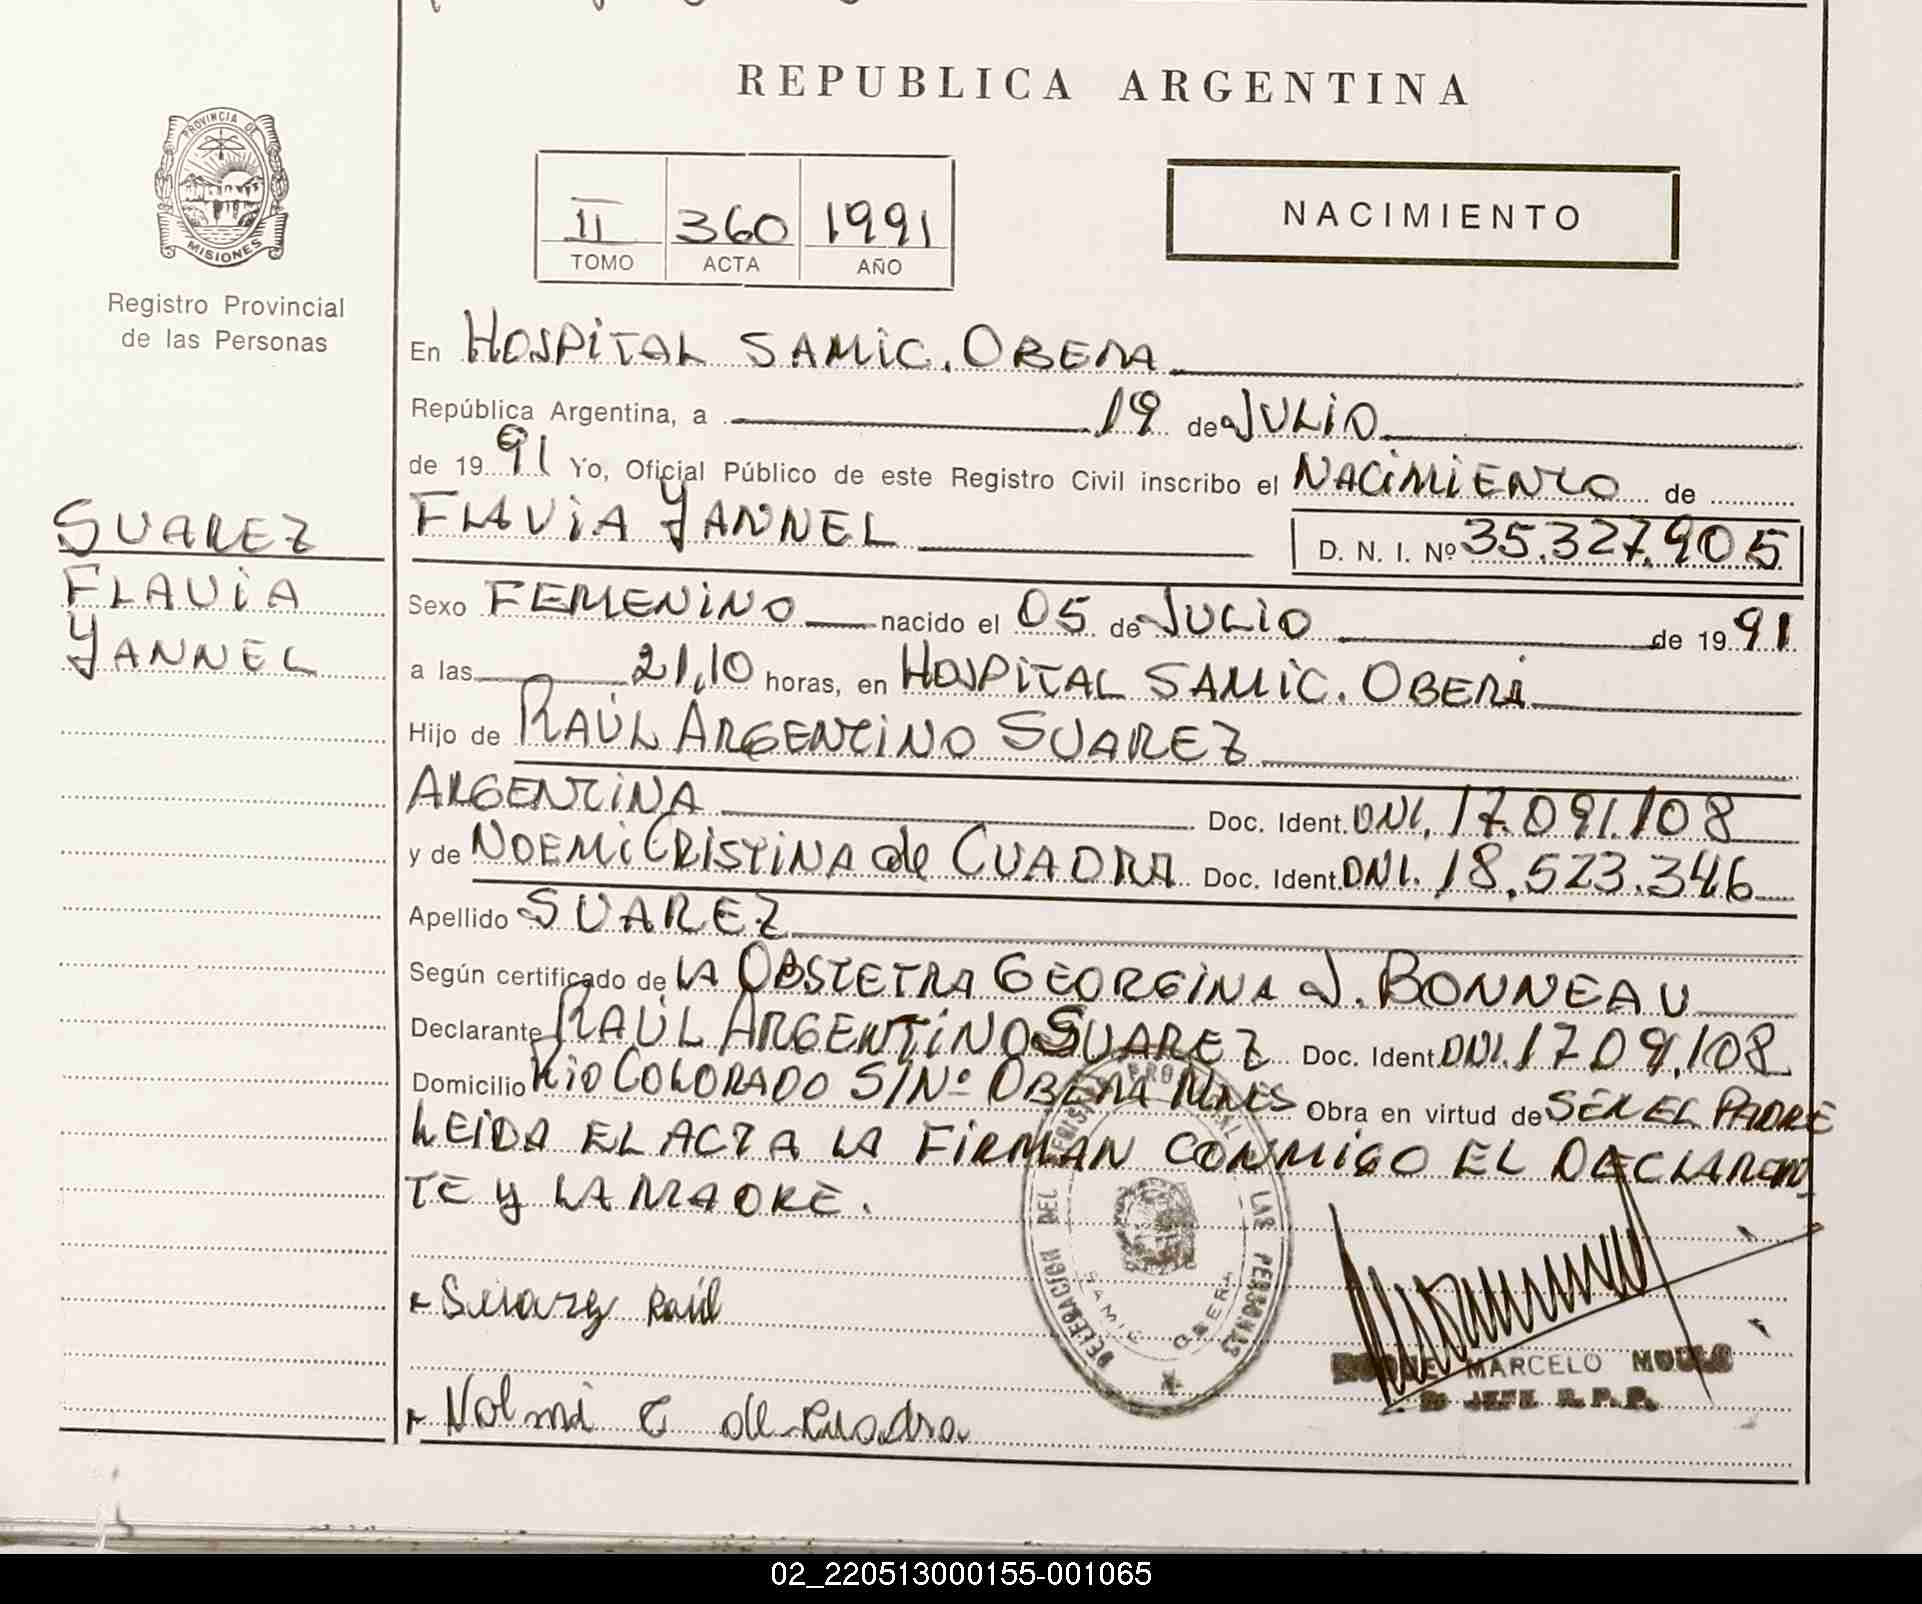 REPUBLICA ARGENTINA
PROVINCIA DE
MISIONES
Registro Provincial
de las Personas
II 360 1991
TOMO ACTA AÑO
NACIMIENTO
SUAREZ
FLAVIA
YANNEL
En HOSPITAL SAMIC. OBERA
República Argentina, a 19 de JULIO
de 19 91 Yo, Oficial Público de este Registro Civil inscribo el NACIMIENTO de
FLAVIA YANNEL D. N. I. Nº 35.327.905
Sexo FEMENINO nacido el 05 de JULIO de 19 91
a las 21,10 horas, en HOSPITAL SAMIC. OBERÁ
Hijo de RAÚL ARGENTINO SUAREZ
ARGENTINA Doc. Ident. DNI. 17.091.108
y de NOEMI CRISTINA de CUADRA Doc. Ident. DNI. 18.523.346
Apellido SUAREZ
Según certificado de LA OBSTETRA GEORGINA J. BONNEAU
Declarante RAÚL ARGENTINO SUAREZ Doc. Ident. DNI. 17.091.108
Domicilio RIO COLORADO S/Nº OBERA MNES Obra en virtud de SER EL PADRE
LEIDA EL ACTA LA FIRMAN CONMIGO EL DECLARAN
TE Y LA MADRE.
DELEGACION DEL REGISTRO PROVINCIAL LAS PERSONAS
SAMIC OBERA
Suarez Raúl
MARCELO
JEFE R.P.P.
Nohmi C de Cuadra
02_220513000155-001065